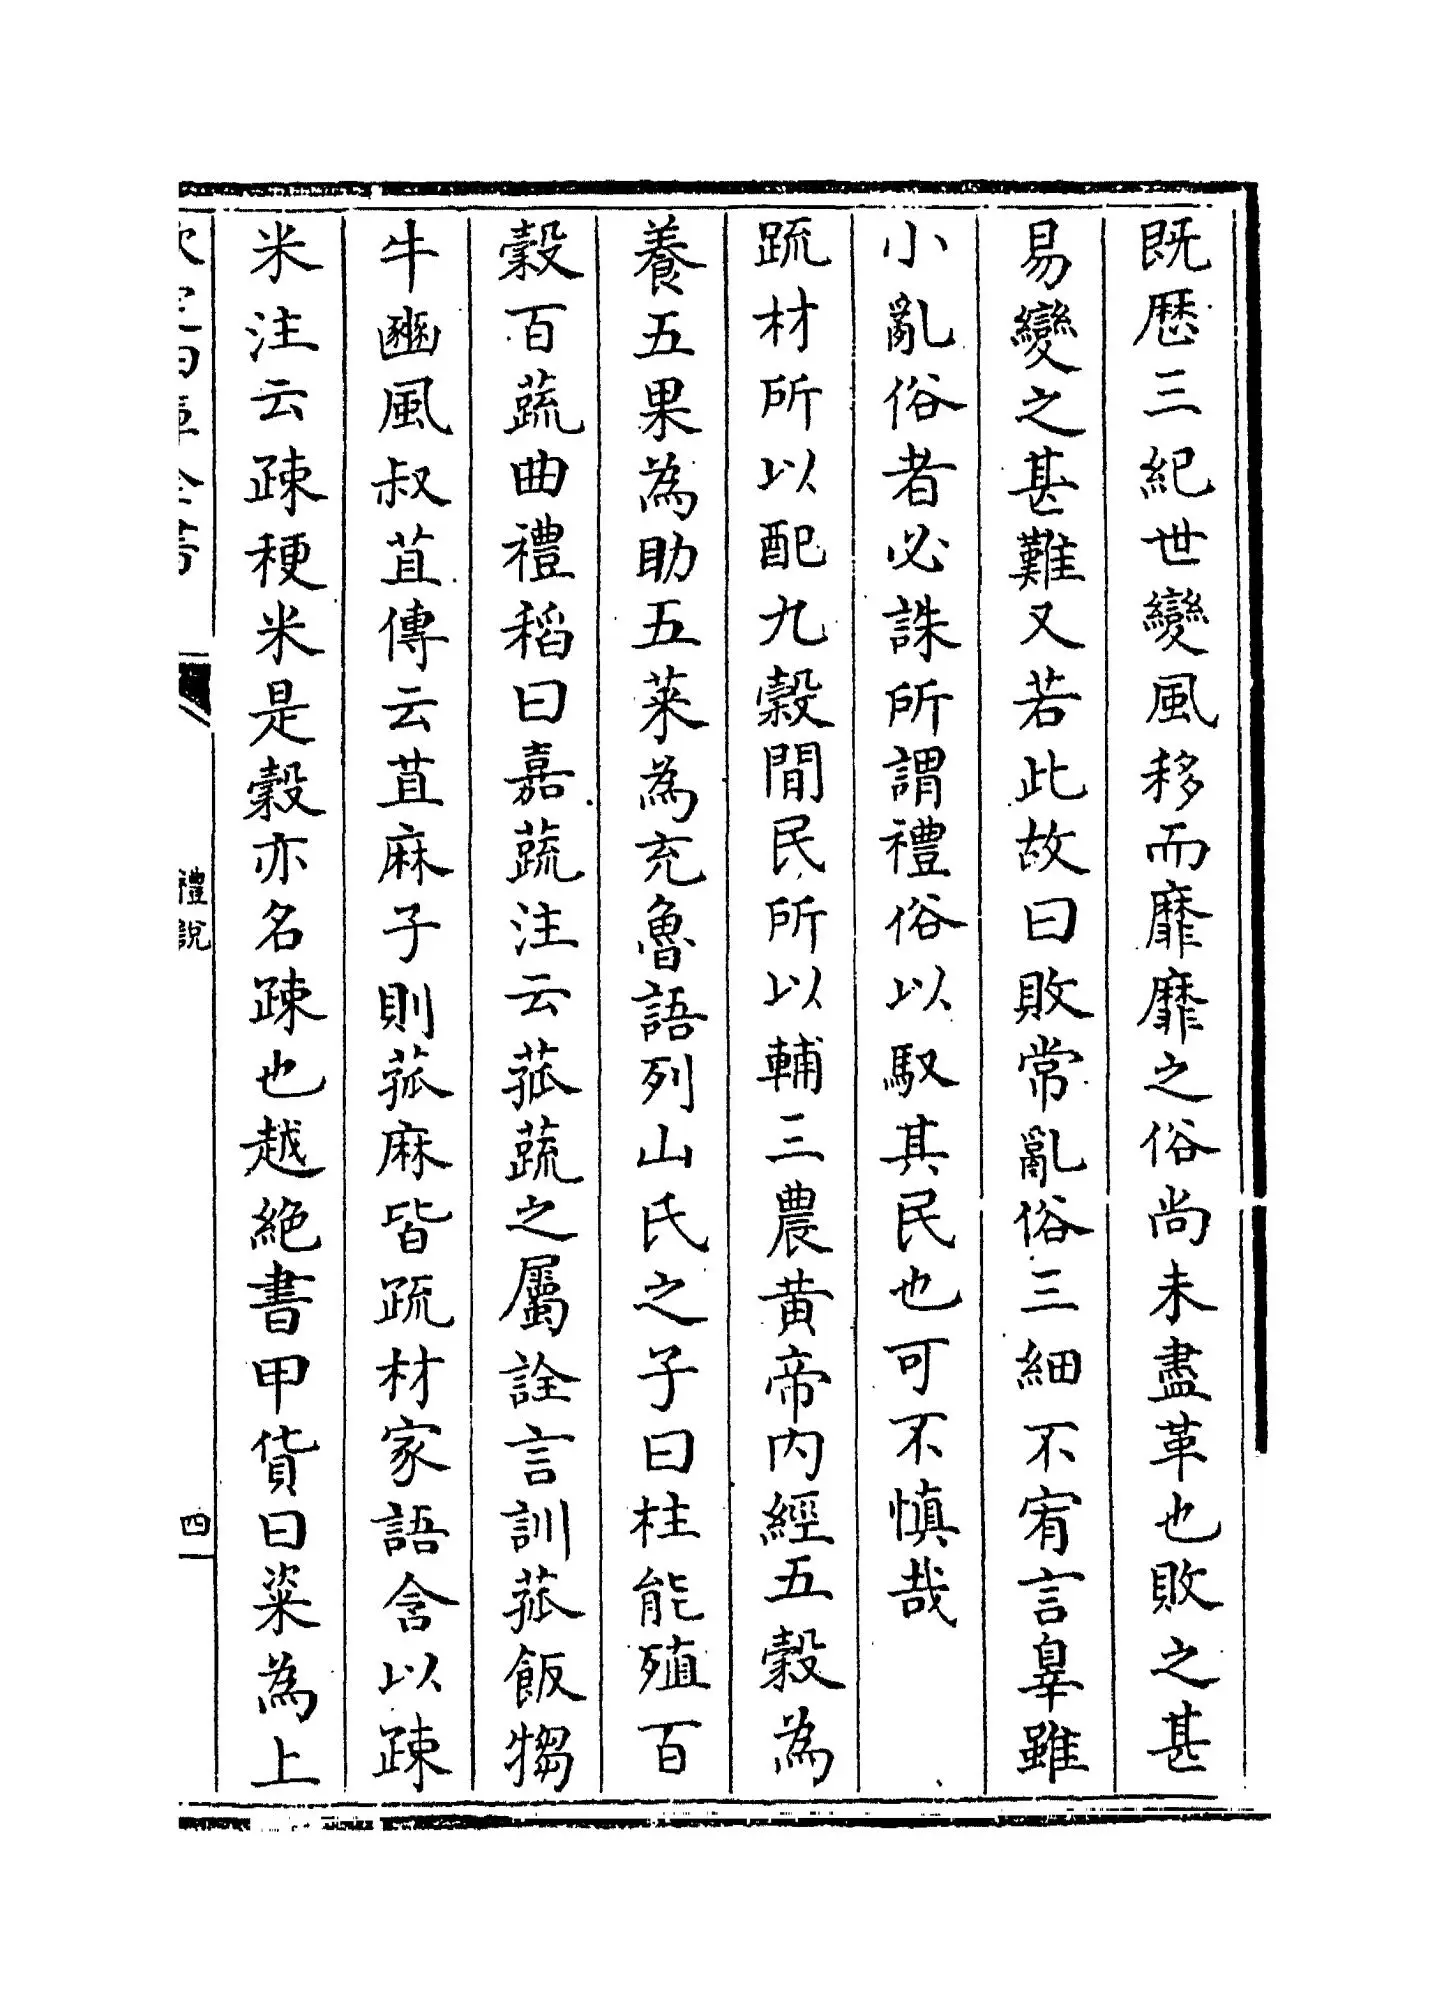 既歴三紀世變風移而靡靡之俗尚未盡革也敗之甚
易變之甚難又若此故曰敗常亂俗三細不宥言辠雖
小亂俗者必誅所謂禮俗以馭其民也可不慎哉
疏材所以配九榖閒民所以輔三農黄帝内經五榖為
養五果為助五菜為充魯語列山氏之子曰柱能殖百
榖百蔬曲禮稻曰嘉蔬注云菰蔬之屬詮言訓菰飯犓
牛豳風叔苴傳云苴麻子則菰麻皆疏材家語含以疎
米注云疎粳米是榖亦名疎也越絶書甲貨曰粢為上
欽定四庫全書
禮說
四